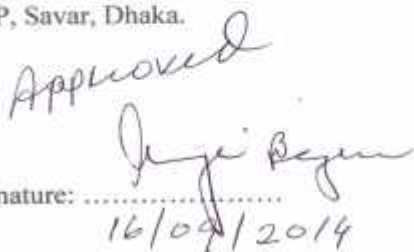 P, Savar, Dhaka.
Approved
Begum
nature: ....................
16/09/2014